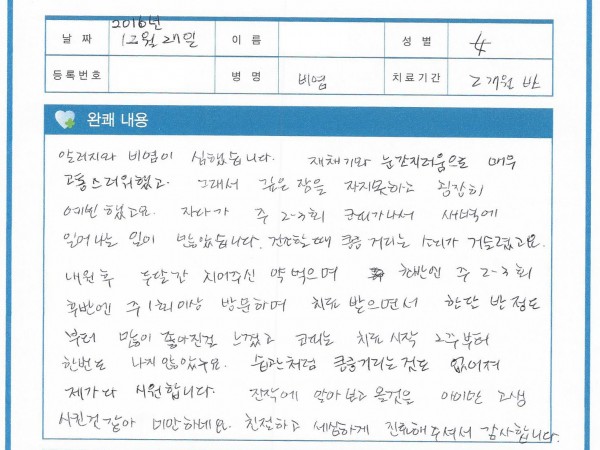 2016년
날 짜 12월 28일 이 름 성 별 女
등록번호 병 명 비염 치료기간 2개월 반
완쾌 내용
알러지와 비염이 심했습니다. 재채기와 눈간지러움으로 매우
고통스러워했고. 그래서 깊은 잠을 자지못하고 굉장히
예민했고요. 자다가 주 2-3회 코피가나서 새벽에
일어나는 일이 많았습니다. 킁킁 거리는 소리가 거슬렸고요.
내원 후 두달간 지어주신 약 먹으며 초반엔 주 2-3회
후반엔 주 1회이상 방문하며 치료 받으면서 한달 반 정도
부터 많이 좋아진걸 느꼈고 코피는 치료 시작 2주부터
한번도 나지 않았구요. 습관처럼 킁킁거리는것도 없어져
제가다 시원합니다. 진작에 알아보고 올것을 아이만 고생
시킨것같아 미안하네요. 친절하고 세심하게 진료해주셔서 감사합니다.